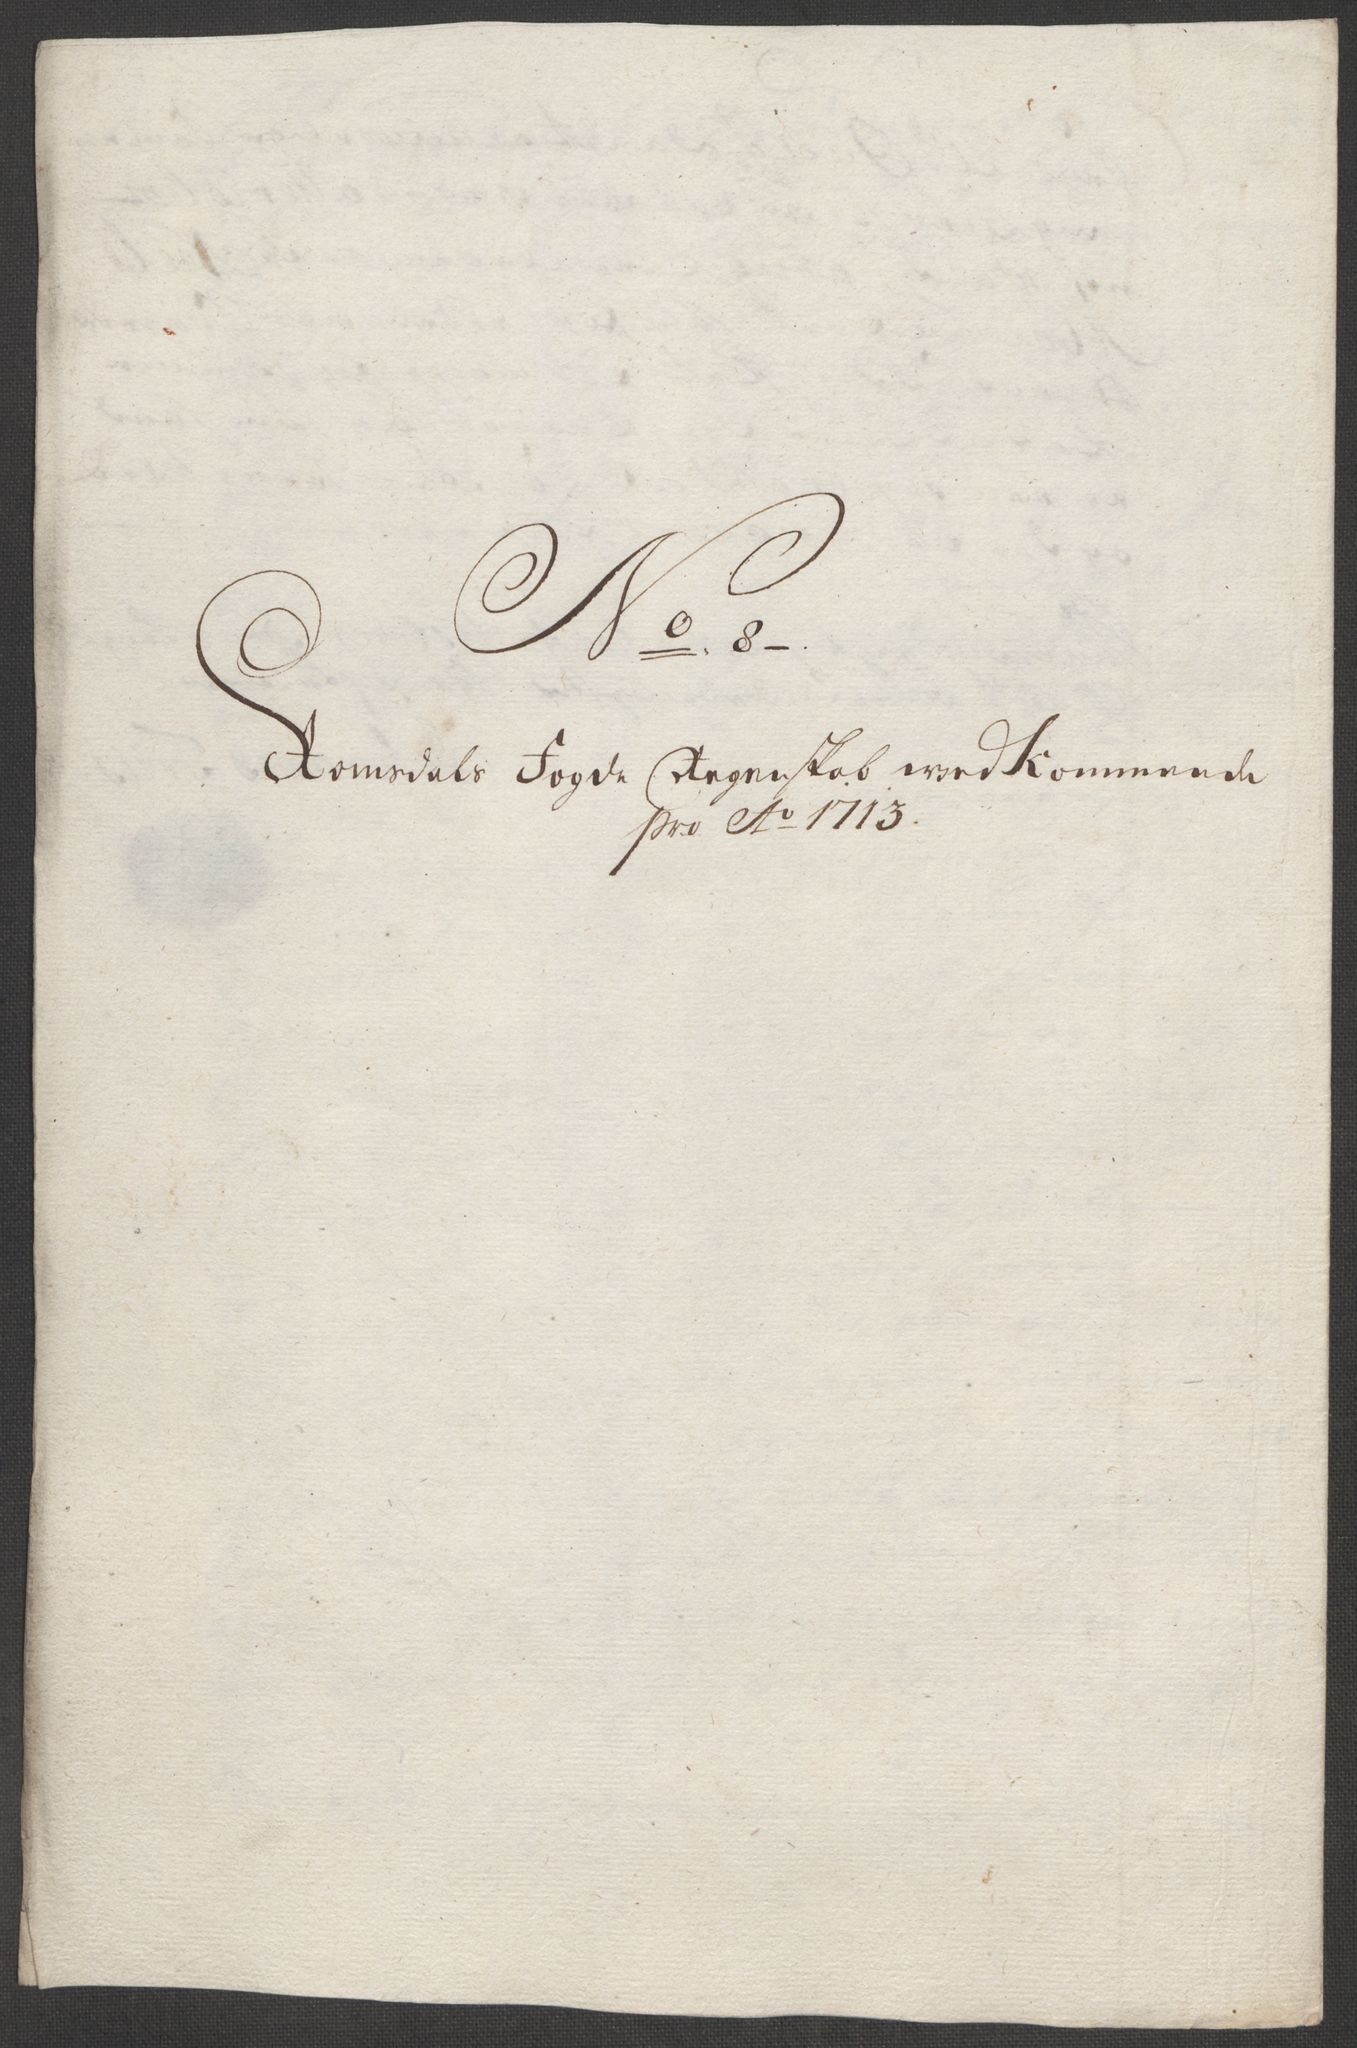 No. 8-.
Romsdals Fogde Regenskab wedkommende
pro Ao 1713.